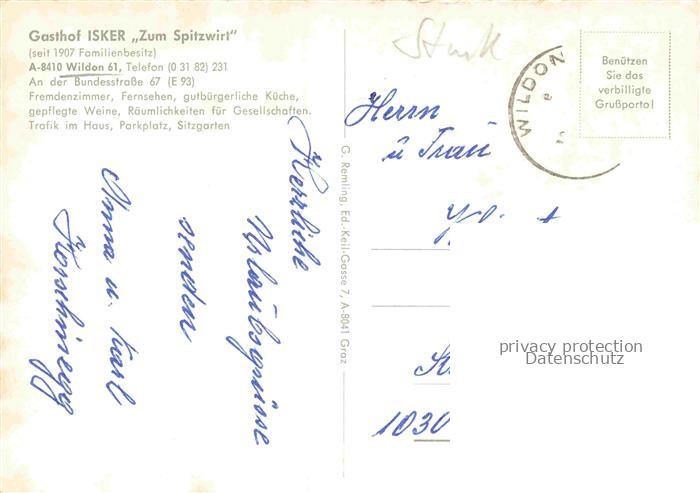 Gasthof ISKER „Zum Spitzwirt"
(seit 1907 Familienbesitz)
A-8410 Wildon 61, Telefon (0 31 82) 231
An der Bundesstraße 67 (E 93)
Fremdenzimmer, Fernsehen, gutbürgerliche Küche,
gepflegte Weine, Räumlichkeiten für Gesellschaften.
Trafik im Haus, Parkplatz, Sitzgarten
Herzliche
Urlaubsgrüsse
senden
Anna u. Karl
G. Remling, Ed.-Keil-Gasse 7, A-8041 Graz
WILDON
Benützen
Sie das
verbilligte
Grußporto!
Herrn
u Frau
1030
privacy protection
Datenschutz